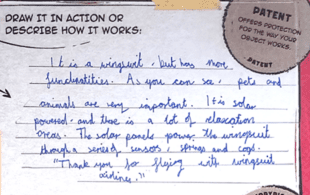 DRAW IT IN ACTION OR
DESCRIBE HOW IT WORKS:
PATENT
OFFERS PROTECTION
FOR THE WAY YOUR
OBJECT WORKS.
PATENT
It is a wingsuit, but has more
functiontities. As you can see, pets and
animals are very important. It is solar
powered. and there is a lot of relaxation
areas. The solar panels power the wingsuit
through a series of sensors, springs and cogs.
"Thank you for flying with wingsuit
airlines."